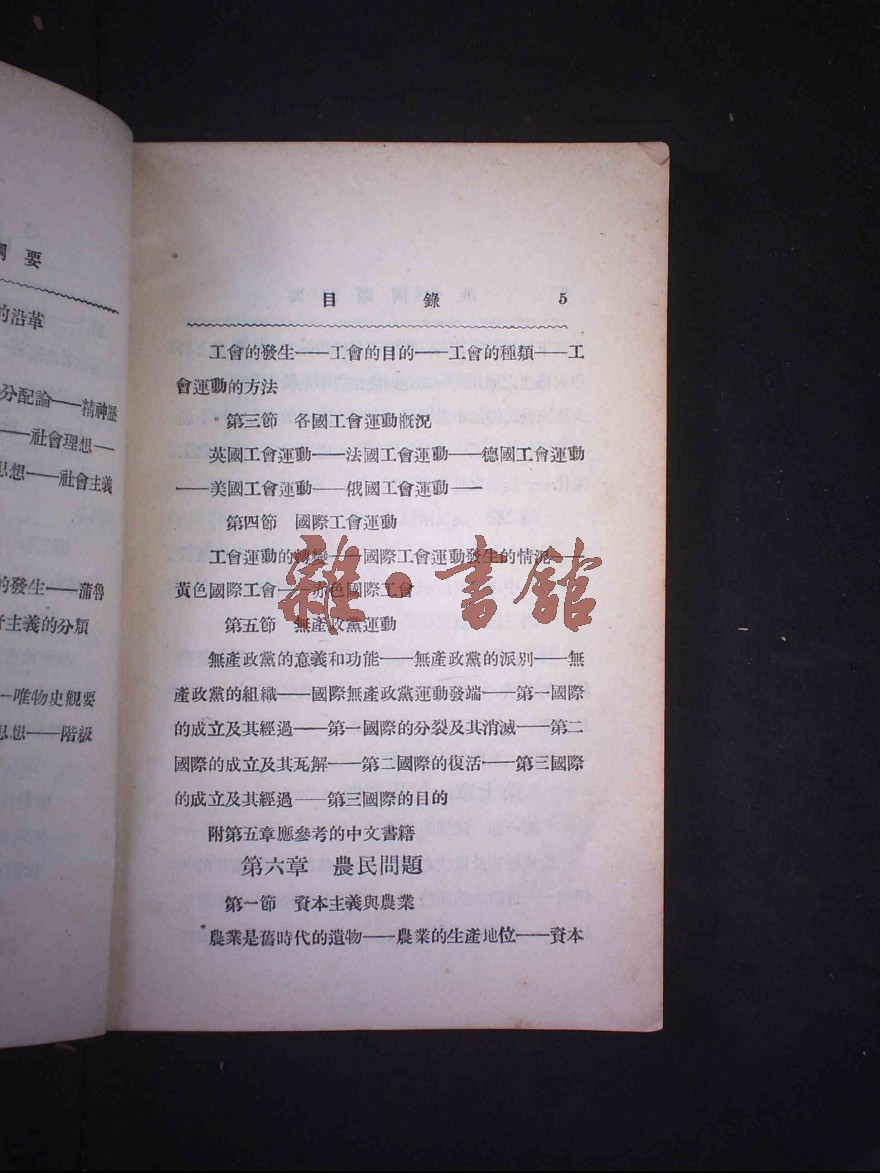 綱要
的沿革
分配論——精神歷
——社會理想—
思想——社會主義
的發生——蒲魯
行主義的分類
—唯物史觀要
思想——階級
目錄 5
工會的發生——工會的目的——工會的種類——工
會運動的方法
第三節 各國工會運動概況
英國工會運動——法國工會運動——德國工會運動
——美國工會運動——俄國工會運動——
第四節 國際工會運動
工會運動的轉變——國際工會運動發生的情況——
黃色國際工會——赤色國際工會
第五節 無產政黨運動
無產政黨的意義和功能——無產政黨的派別——無
產政黨的組織——國際無產政黨運動發端——第一國際
的成立及其經過——第一國際的分裂及其消滅——第二
國際的成立及其瓦解——第二國際的復活——第三國際
的成立及其經過——第三國際的目的
附第五章應參考的中文書籍
第六章 農民問題
第一節 資本主義與農業
農業是舊時代的遺物——農業的生產地位——資本
雜·書館